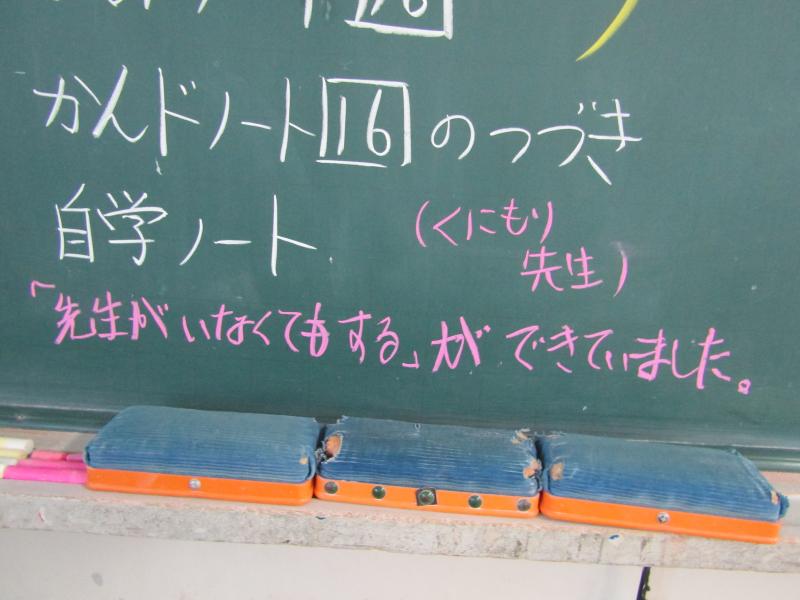 かんドノート16のつづき
自学ノート
(くにもり
先生)
「先生がいなくてもする」ができていました。